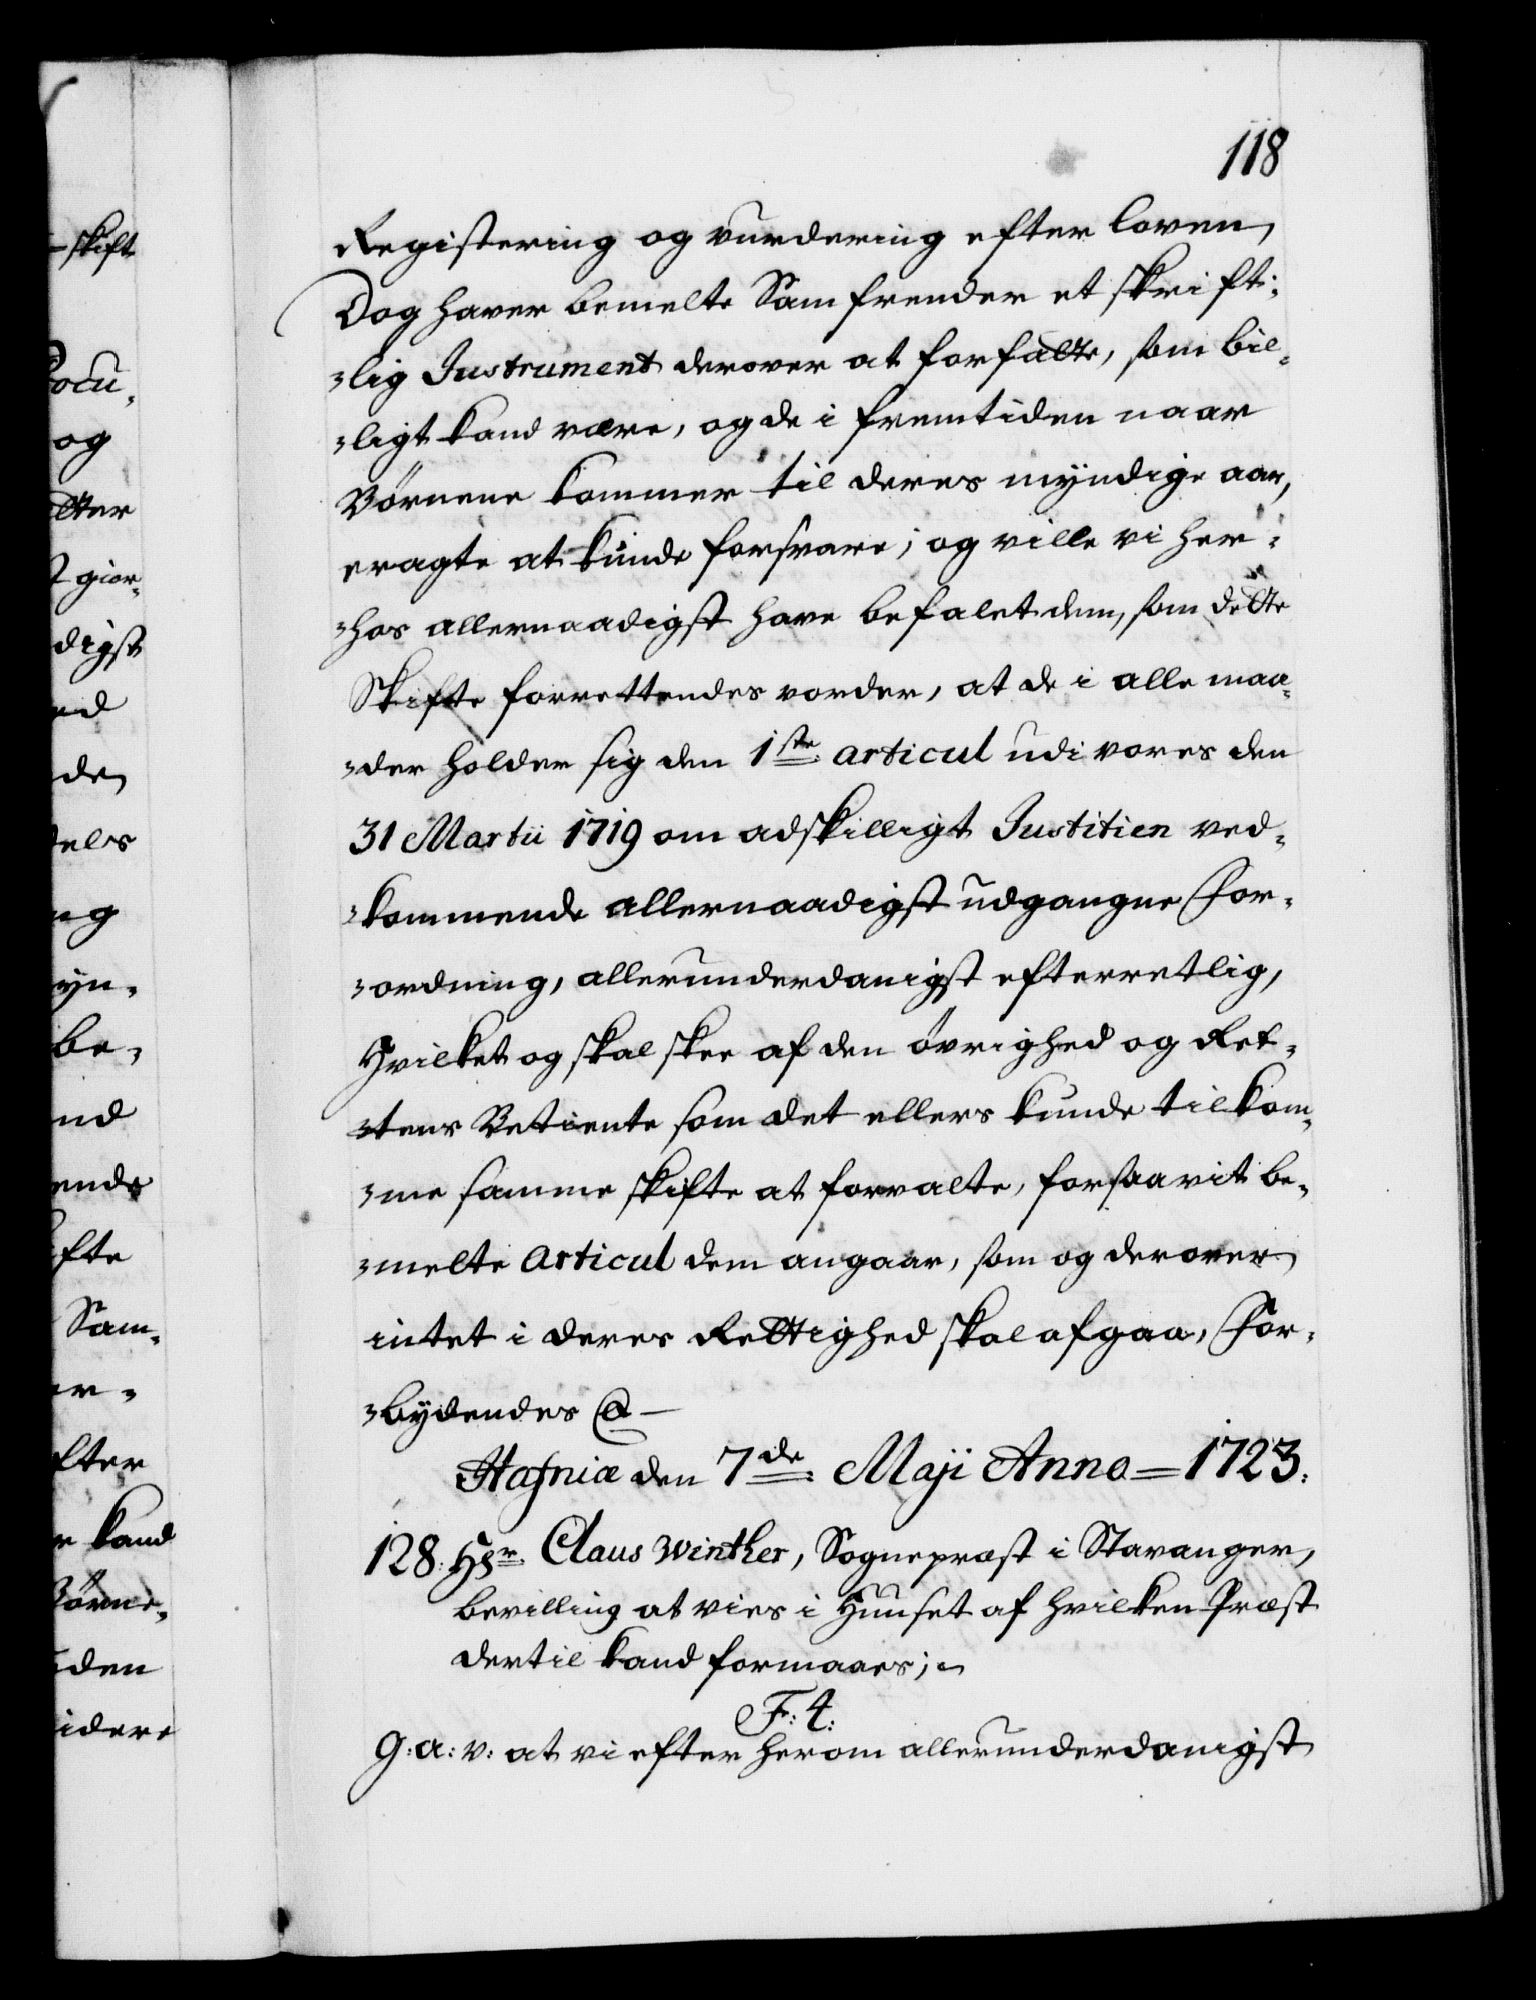 118
Registering og vurdering efter loven,
Dog haver bemelte Samfrender et skrift-
-lig Instrument derover at forfatte, som bil-
-ligt kand være, og de i fremtiden naar
Børnene kommer til deres myndige aar,
eragte at kunde forsvare; og ville vi her-
-hos allernaadigst have befalet dem, som dette
Skifte forrettendes vorder, at de i alle maa-
-der holder sig den 1ste articul udi vores den
31 Martii 1719 om adskilligt Justitien ved-
-kommende allernaadigst udgangne For-
-ordning, allerunderdanigst efterretlig,
Hvilket og skal skee af den øvrighed og Ret-
-tens Betiente som det ellers kunde tilkom-
-me samme skifte at forvalte, forsaavit be-
-melte articul dem angaar, som og derover
intet i deres Rettighed skal afgaa, For-
-bydendes @
Hafniæ den 7de Maji Anno 1723.
128. Hr. Claus Winther, Sognepræst i Stavanger,
bevilling at vies i Huuset af hvilken Præst
dertil kand formaaes;
F: 4:
G: a: v: at vi efter herom allerunderdanigst
skift
ocu-
og
tter
gior-
digst
ed
den
dels
ng
yn-
be-
nd
ende
fte
Sam-
er-
fter
kand
Børne-
den
idere